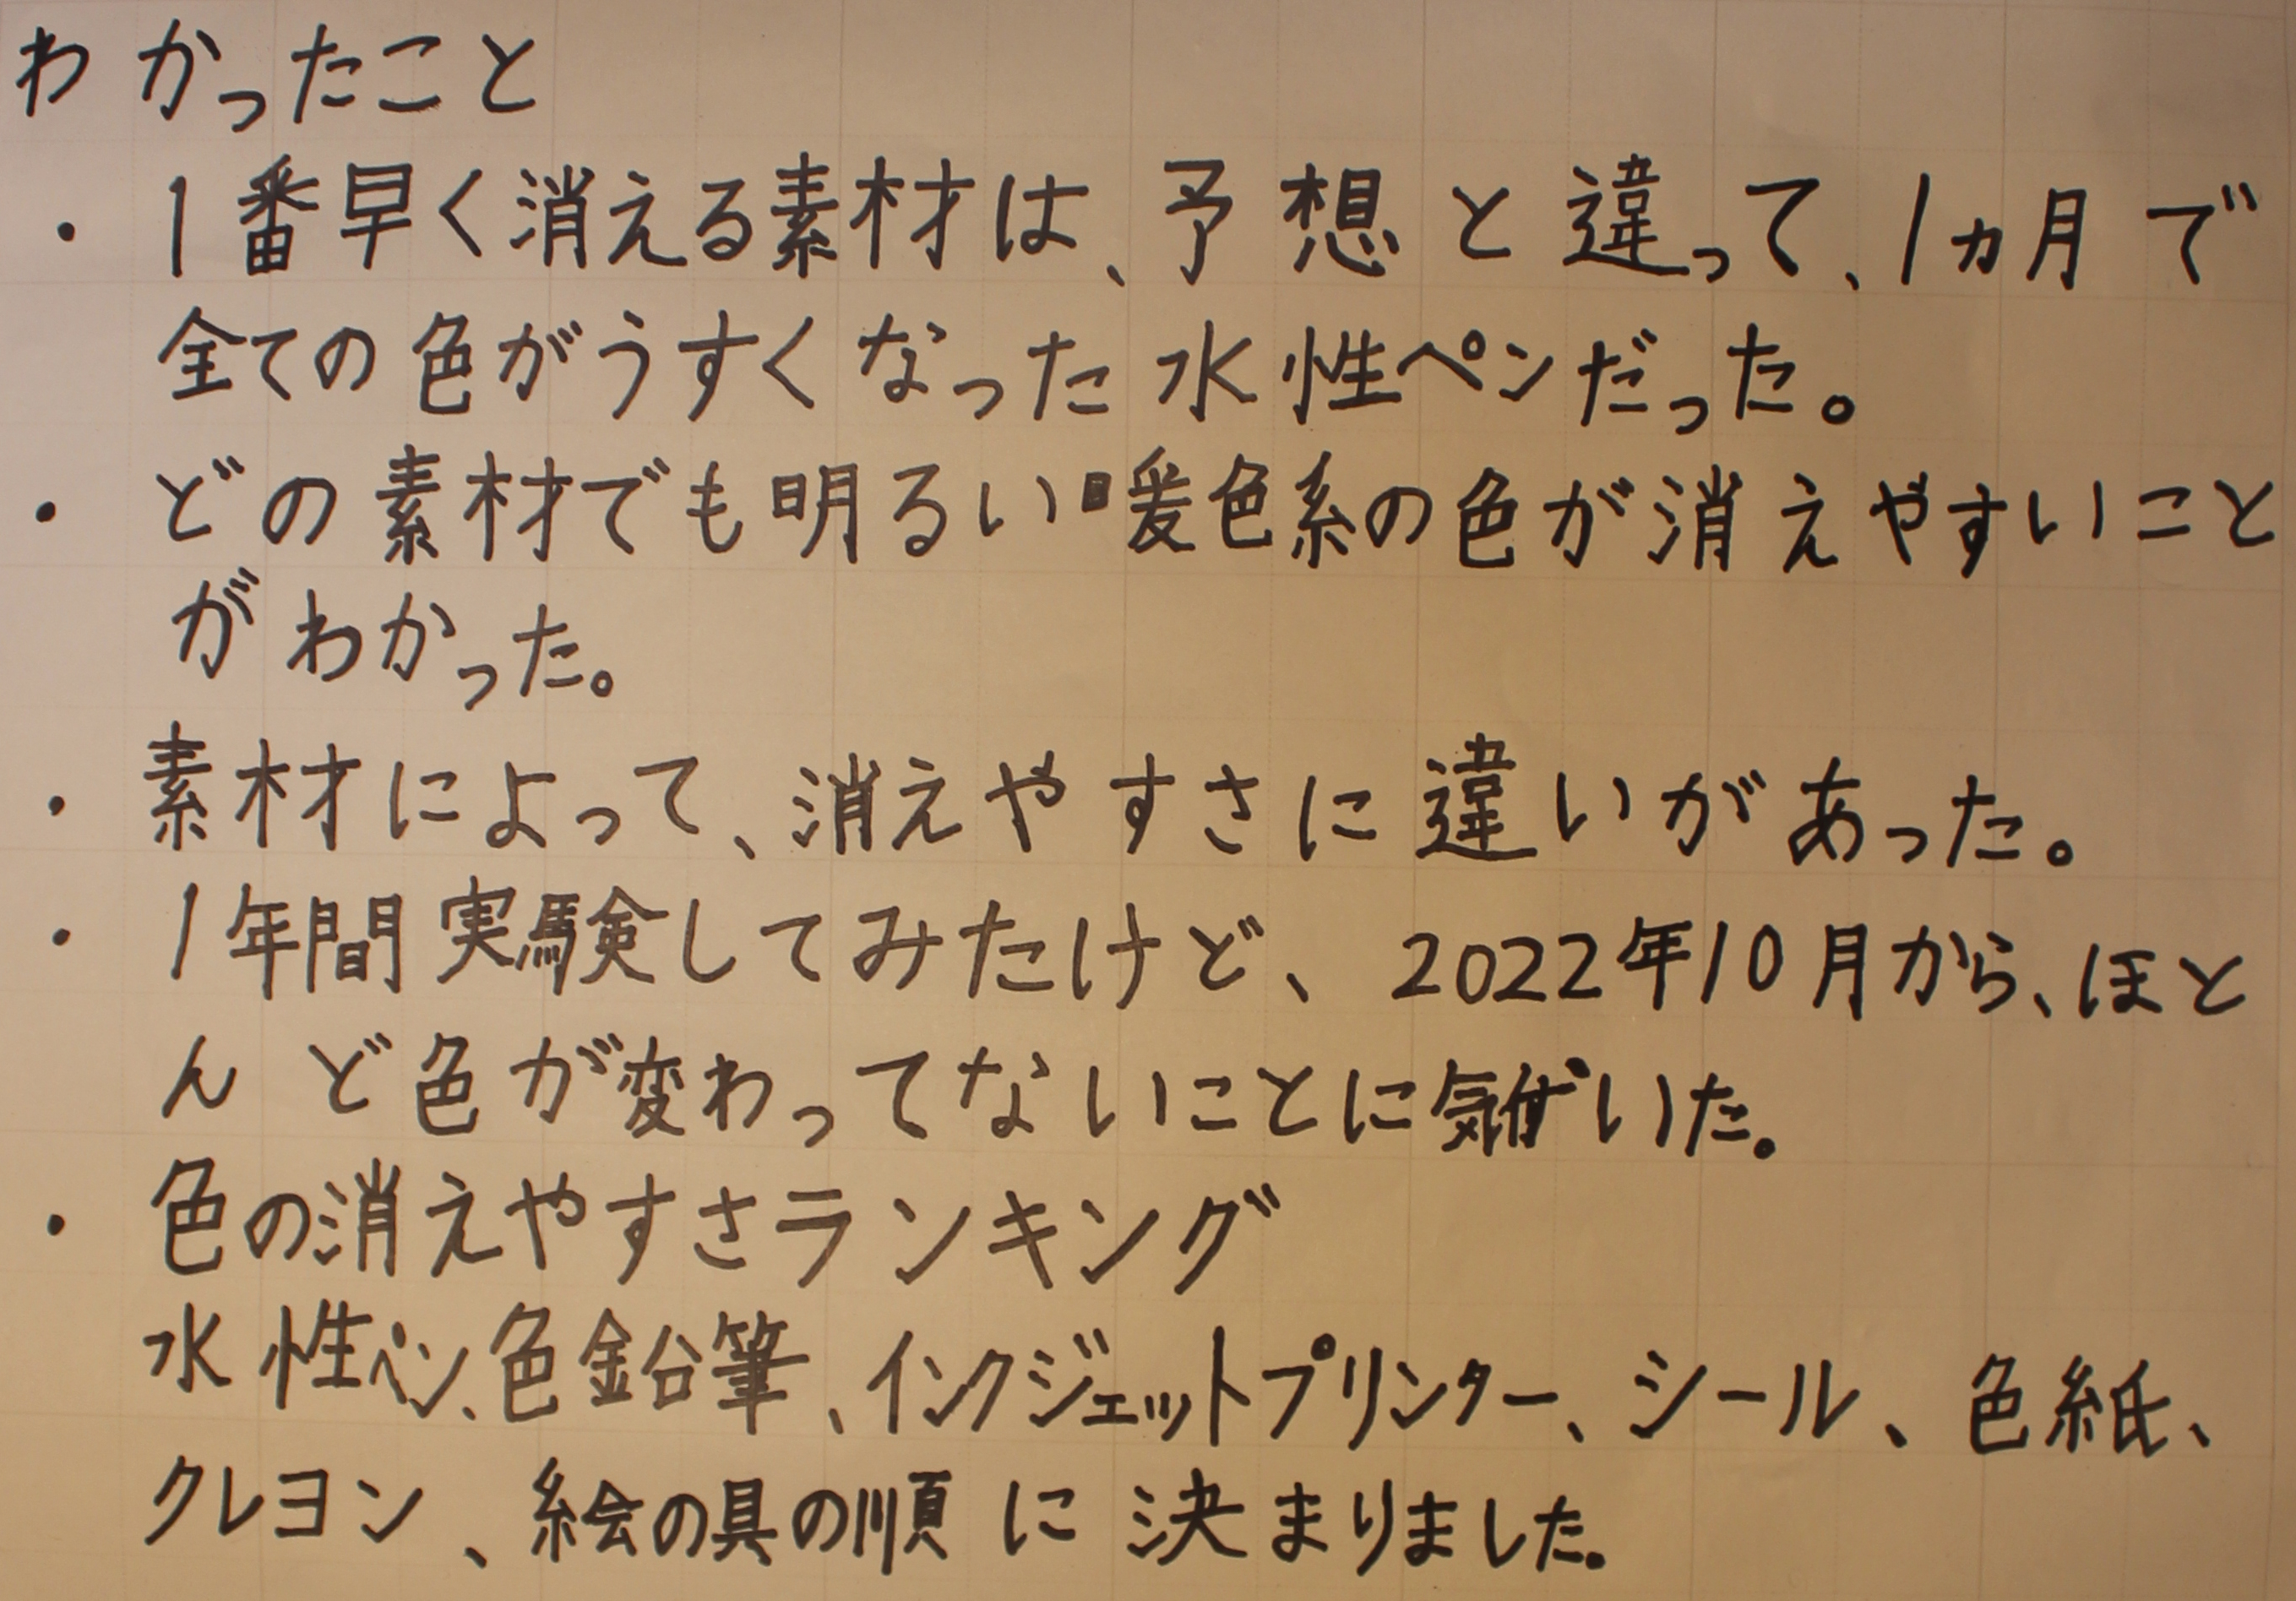 わかったこと
・1番早く消える素材は、予想と違って、1ヵ月で
全ての色がうすくなった水性ペンだった。
・どの素材でも明るい暖色系の色が消えやすいこと
がわかった。
・素材によって、消えやすさに違いがあった。
・1年間実験してみたけど、2022年10月から、ほと
んど色が変わってないことに気付いた。
・色の消えやすさランキング
水性ペン、色鉛筆、インクジェットプリンター、シール、色紙、
クレヨン、絵の具の順に決まりました。